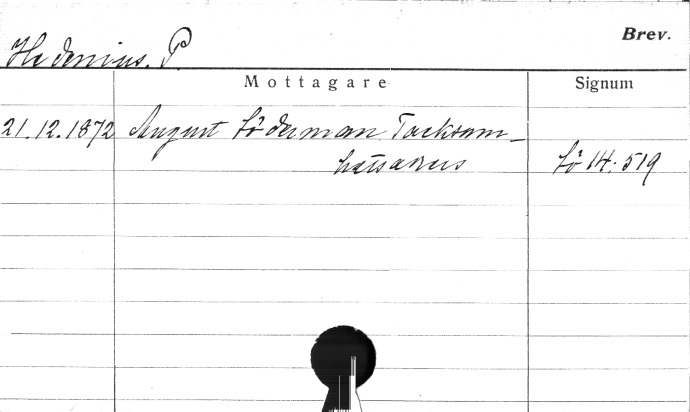 Brev.
Hedenius. P.
Mottagare Signum
21.12.1872 August Söderman Tacksam-
hetsadress Sö 14: 519